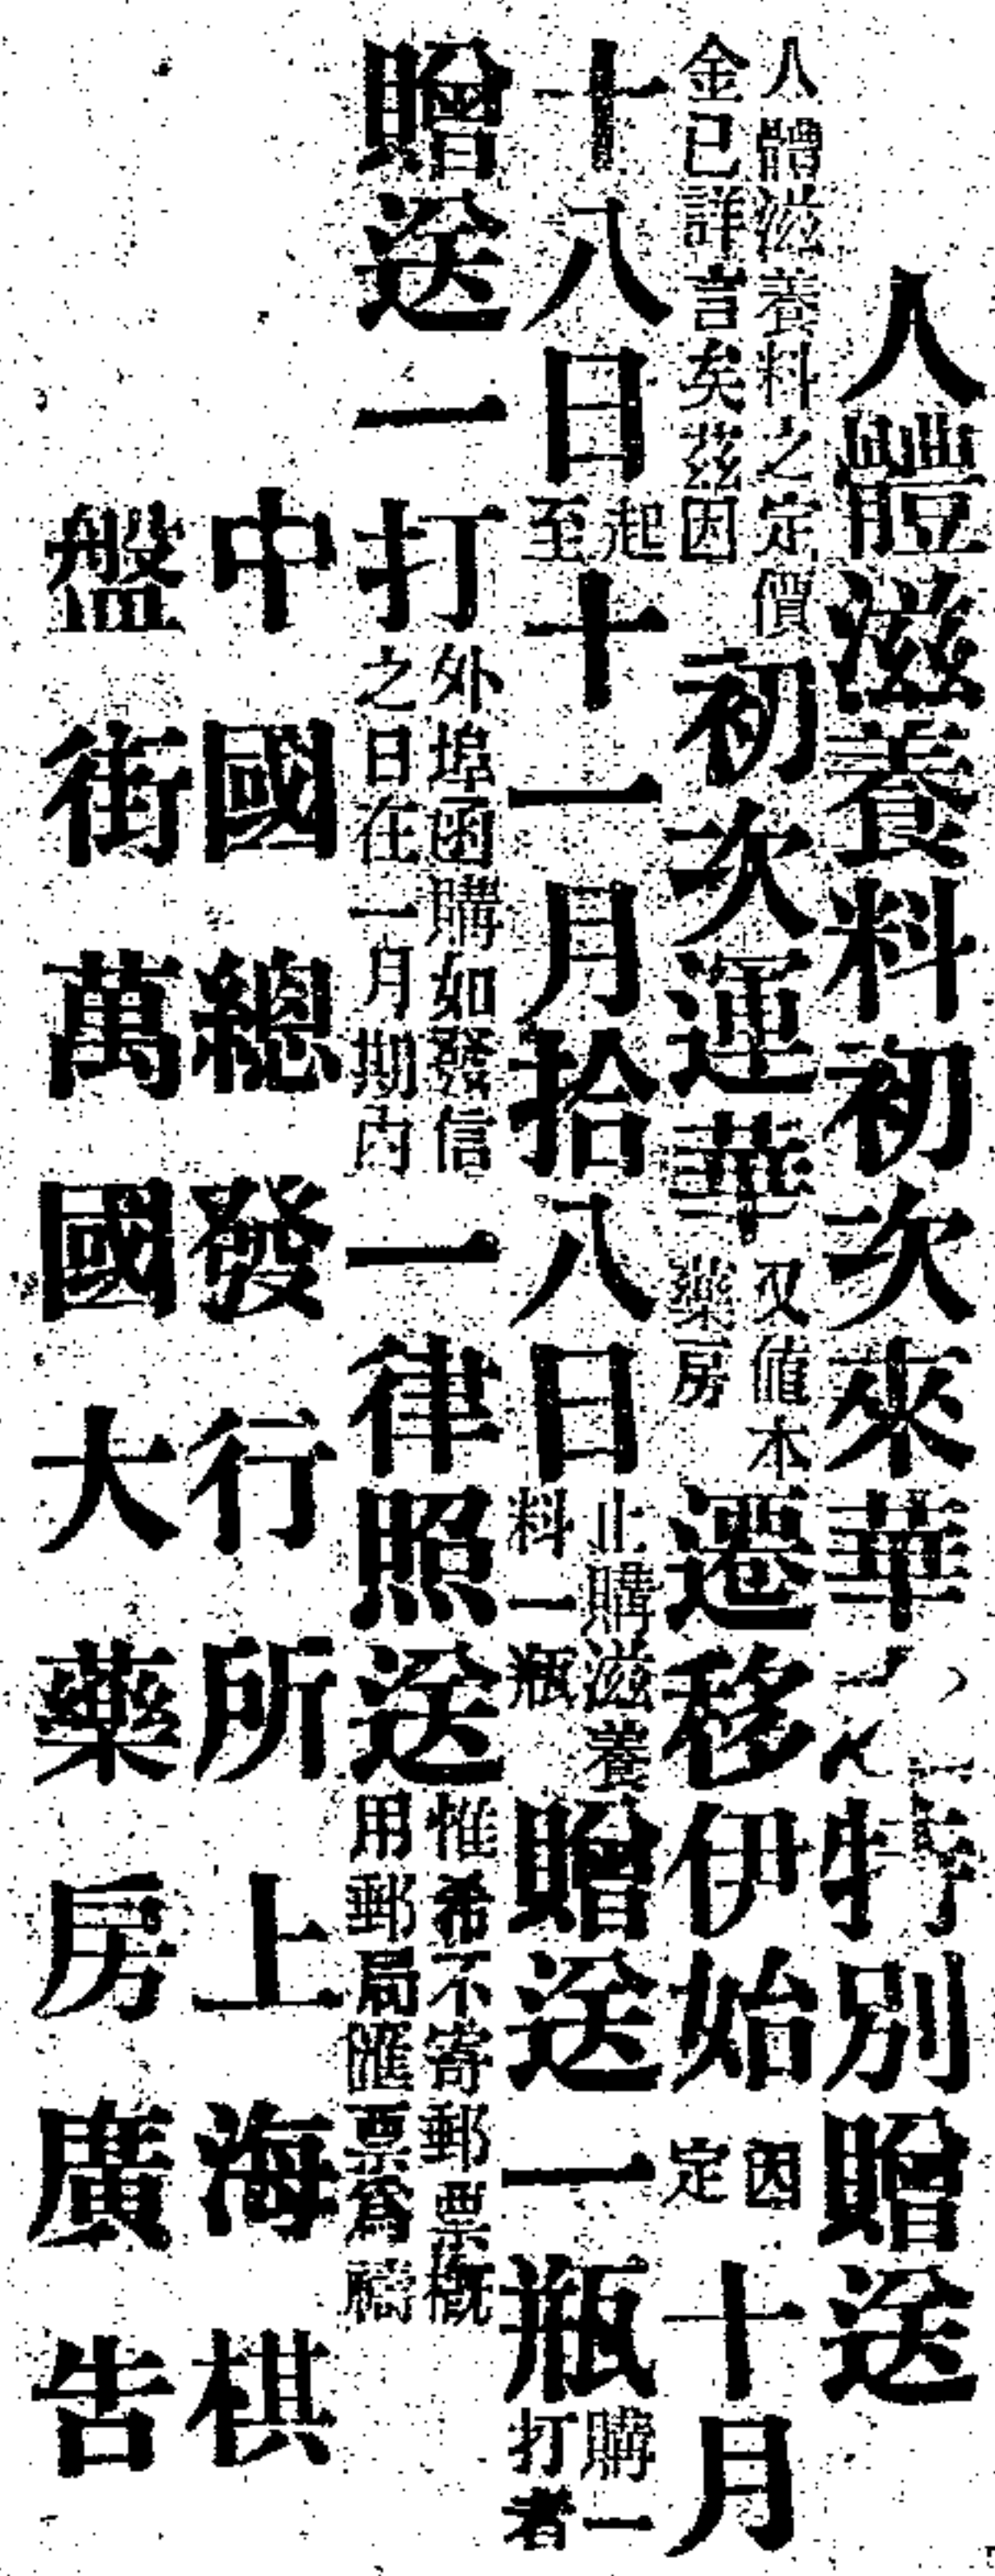 人體滋養料初次來華特別贈送
人體滋養料之定價金已詳言矣茲因初次運華又值本藥房遷移伊始因定十月
十八日起至十一月拾八日止購滋養料一瓶贈送一瓶購一打者
贈送一打外埠函購如發信之日在一月期內一律照送惟希不寄郵票概用郵局匯票爲禱
中國總發行所上海棋
盤街萬國大藥房廣告